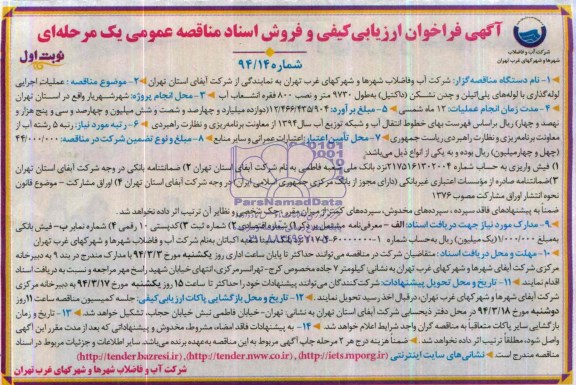 آگهی فراخوان ارزیابی کیفی و فروش اسناد مناقصه عمومی یک مرحله‌ای
شماره ۹۴/۱۴
نوبت اول
شرکت آب و فاضلاب
شهرها و شهرکهای غرب تهران
۱- نام دستگاه مناقصه‌گزار: شرکت آب وفاضلاب شهرها و شهرکهای غرب تهران به نمایندگی از شرکت آبفای استان تهران ۲- موضوع مناقصه: عملیات اجرایی
لوله‌گذاری با لوله‌های پلی‌اتیلن و چدن نشکن (داکتیل) به‌طول ۹۷۳۰ متر و نصب ۸۰۰ فقره انشعاب آب ۳- محل انجام پروژه: شهرشهریار واقع در استان تهران
۴- مدت زمان انجام عملیات: ۱۲ ماه شمسی ۵- مبلغ برآورد: ۱۲/۴۶۶/۴۳۵/۹۰۴(دوازده میلیارد و چهارصد و شصت و شش میلیون و چهارصد و سی و پنج هزار و
نهصد و چهار) ریال براساس فهرست بهای خطوط انتقال آب و شبکه توزیع آب سال۱۳۹۴ از معاونت برنامه‌ریزی و نظارت راهبردی ۶- رتبه مورد نیاز: رتبه ۵ رشته آب از
معاونت برنامه‌ریزی و نظارت راهبردی ریاست جمهوری ۷- محل تأمین اعتبار: اعتبارات عمرانی و سایر منابع ۸- مبلغ و نوع تضمین شرکت در مناقصه: ۴۴/۰۰۰/۰۰۰
(چهل و چهارمیلیون) ریال بوده و به یکی از انواع ذیل می‌باشد:
۱) فیش واریزی به حساب شماره ۲۱۷۵۱۶۱۳۰۲۰۰۴ نزد بانک ملی شعبه فاطمی به نام شرکت آبفای استان تهران ۲) ضمانتنامه بانکی در وجه شرکت آبفای استان تهران
۳)ضمانتنامه صادره از مؤسسات اعتباری غیربانکی (دارای مجوز از بانک مرکزی جمهوری اسلامی ایران) در وجه شرکت آبفای استان تهران ۴) اوراق مشارکت - موضوع قانون
نحوه انتشار اوراق مشارکت مصوب ۱۳۷۶
ضمناً به پیشنهادهای فاقد سپرده، سپرده‌های مخدوش، سپرده‌های کمتر از میزان مقرر، چک شخصی و نظایر آن ترتیب اثر داده نخواهد شد.
۹- مدارک مورد نیاز جهت دریافت اسناد: الف - معرفی‌نامه مشتمل بر ذکر۱) شماره اقتصادی ۲) شماره ثبت ۳)کدپستی ۱۰ رقمی ۴) شماره نمابر ب- فیش بانکی
به‌مبلغ ۱/۰۰۰/۰۰۰(یک میلیون) ریال به‌حساب شماره
۱۰- مهلت و محل دریافت اسناد: متقاضیان شرکت در مناقصه می‌توانند حداکثر تا پایان ساعت اداری روز یکشنبه مورخ ۹۴/۳/۳ با مدارک مندرج در بند ۹ به دفترخانه
مرکزی شرکت آبفای شهرها و شهرکهای غرب تهران به نشانی: کیلومتر ۷ جاده مخصوص کرج- تهرانسر مرکزی، انتهای خیابان شهید راسخ مهر مراجعه و نسبت به دریافت اسناد
اقدام نمایند ۱۱- تاریخ و محل تحویل پیشنهادات: شرکت‌کنندگان می‌توانند پیشنهادات خود را حداکثر تا ساعت ۱۵ روز یکشنبه مورخ ۹۴/۳/۱۷ به دفترخانه مرکزی
شرکت آبفای شهرها و شهرکهای غرب تهران، درقبال اخذ رسید تحویل نمایند. ۱۲- تاریخ و محل بازگشایی پاکات ارزیابی‌کیفی: جلسه کمیسیون مناقصه ساعت ۱۱ روز
دوشنبه مورخ ۹۴/۳/۱۸ در محل دفتر ذیحسابی شرکت آبفای استان تهران به نشانی: تهران-خیابان فاطمی نبش خیابان حجاب، تشکیل خواهد شد. ۱۳- تاریخ و زمان
بازگشایی سایر پاکات متعاقباً به مناقصه گران واجد شرایط اعلام خواهد شد. ۱۴- به پیشنهادات فاقد امضاء، مشروط، مخدوش و پیشنهاداتی که بعد از مدت مقرر این آگهی
واصل شود، مطلقاً ترتیب اثر داده نخواهد شد. ضمناً هزینه درج هر ۲ مرحله چاپ آگهی مربوط به این مناقصه به‌عهده برنده می‌باشد. سایر اطلاعات و جزئیات مربوط در اسناد
مناقصه مندرج است. نشانی‌های سایت اینترنتی (http://iets.mporg.ir) ,(http://tender.nww.co.ir) ,(http://tender.bazresi.ir)
شرکت آب و فاضلاب شهرها و شهرکهای غرب تهران
ParsNamadData